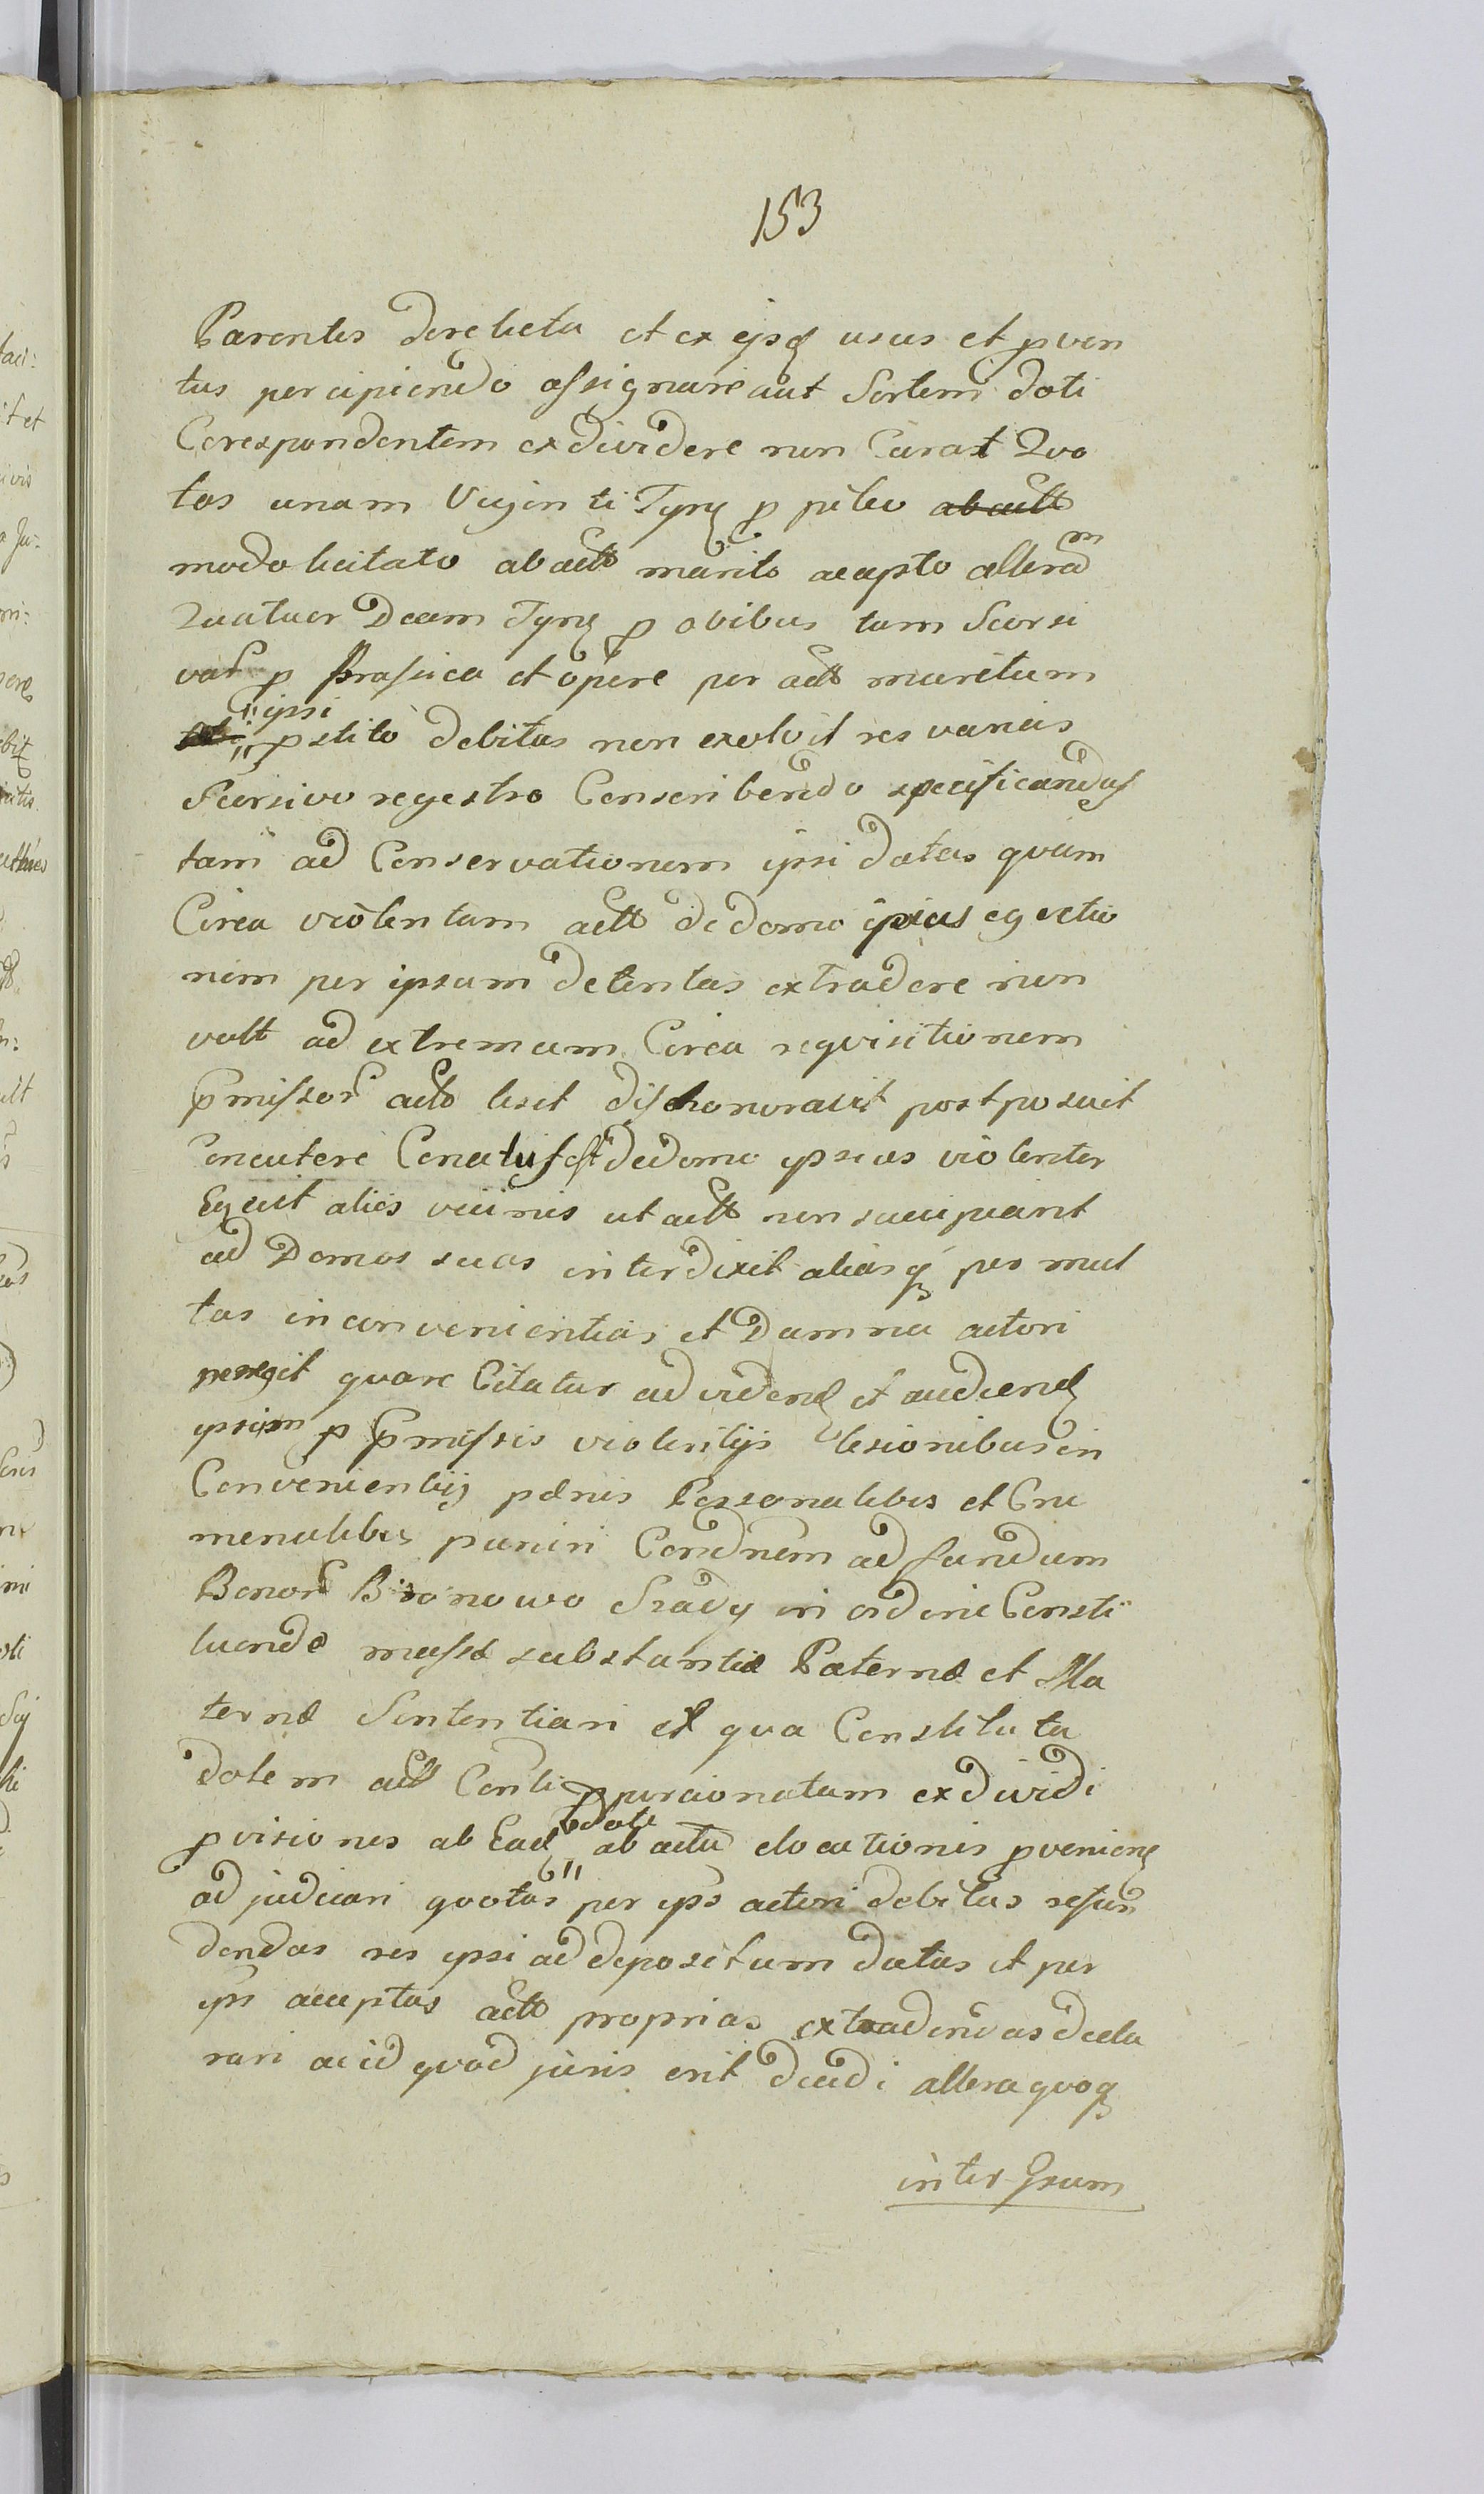 153
Parentis derelicta et ex ejsq usus et pven
tus percipiendo assignare aut Sortem doti
Corespondentem exdividere non Curat Quo
tas unam Viginti Tynf p pileo ab actt
modo licitato ab actt marito accepto alteram
Quatuor Decem Tynf p ovibus tum Seorsi
vat p Brassica et opere per actt maritum
ipsi
pstito debitas non exolvit res variis
Seorsivo regestro Conscribendo specificandas
tam ad Conservationem ipsi datas quam
Circa violentam actt de domo ipsius egectio
nem per ipsum detentas extradere non
vult ad extremum Circa requisitionem
pmissor actt lesit dishonoravit postposuit
Concutere Conatus est de domo ipsius violenter
Egecit alies vicinis ut actt non suscipiant
ad Domos suas interdixit aliasq per mul
tas inconvenientias et Damna actori
peregit quare Citatur ad vidend et audiend
ipsum p pmissis violentijs lesionibus in
Convenientijs pœnis Personalibus et Cru
menalibus puniri Condnem ad fundum
Bonor Bronowo Srady in ordine Consti
tuendæ massæ substantiæ Paternæ et Ma
ternæ Sententiari et qua Constituta
dotem actt Conti pporcionatam exdividi
pvisiones ab Ead dote ab actu elocutionis pvenien
adjudicari quotas per ips actori debitas refun
dendas res ipsi ad depositum datas et per
ips acceptas actt proprias extradendas decla
rari ac id quod juris erit decidi altera quoq
inter Gsum